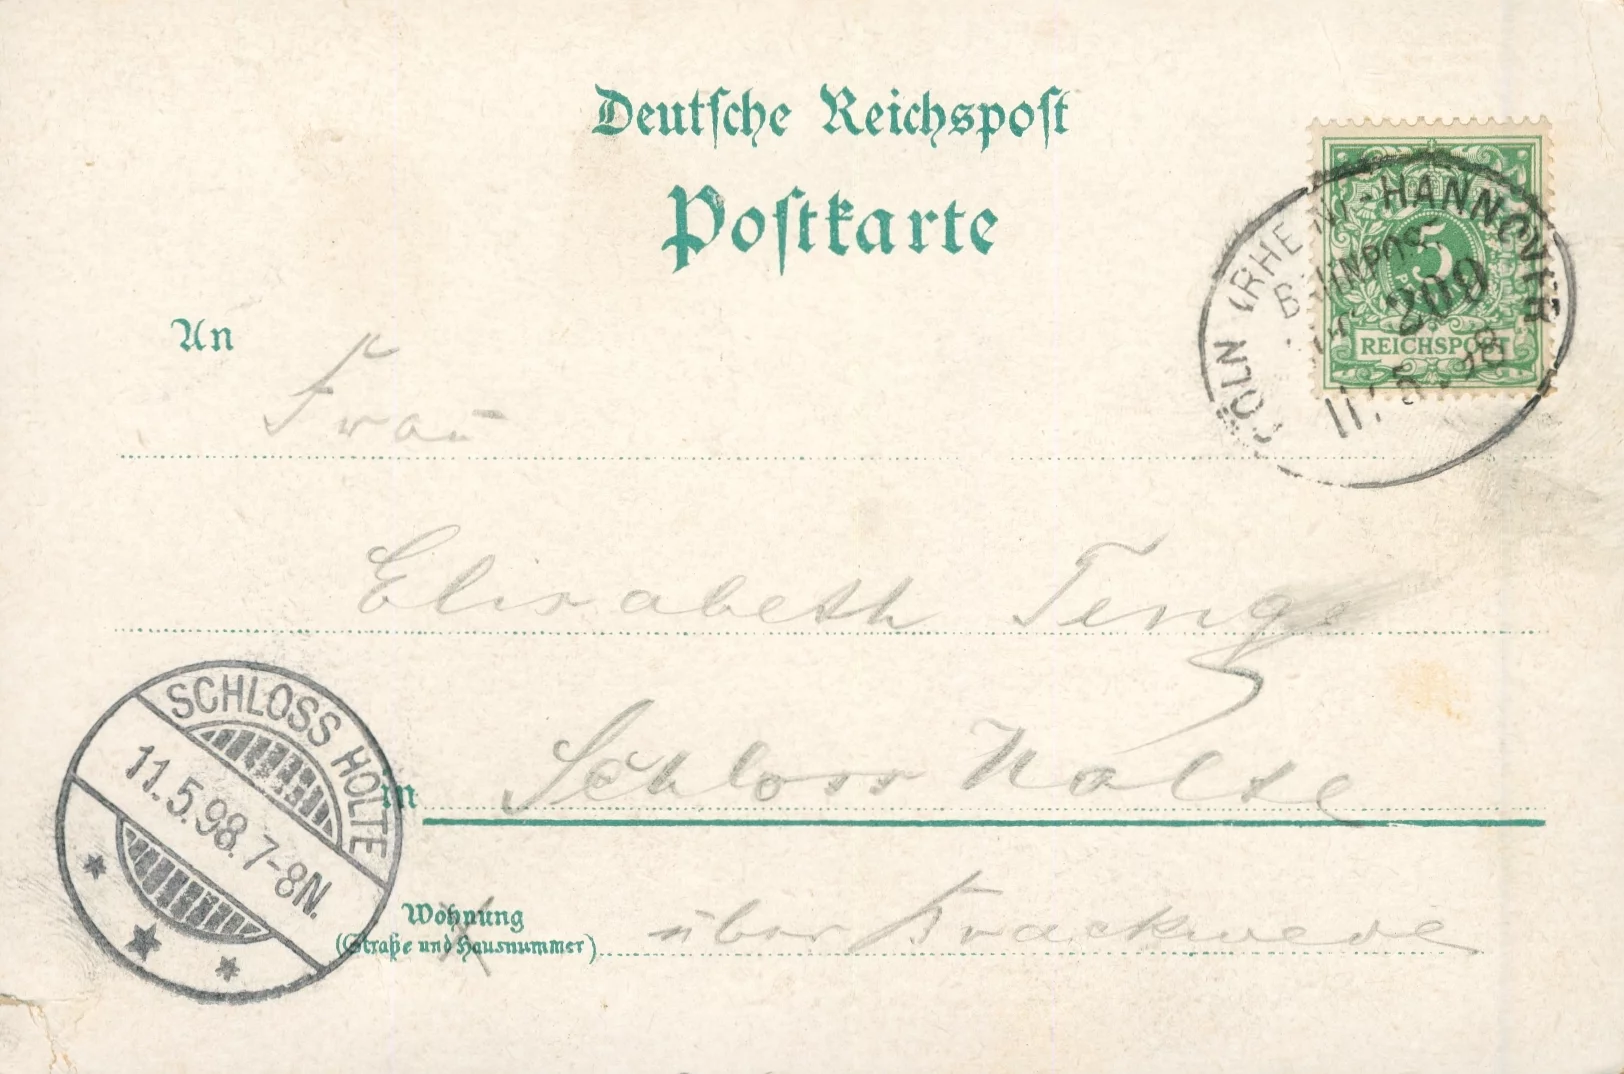 Deutsche Reichspost
Postkarte
CÖLN (RHEIN)-HANNOVER
BAHNPOST
ZUG 209
11.5.98
5
REICHSPOST
An
Frau
Elisabeth Tenge
in Schloss Holte
SCHLOSS HOLTE
11.5.98.7-8N.
Wohnung
(Straße und Hausnummer)
über Brackwede